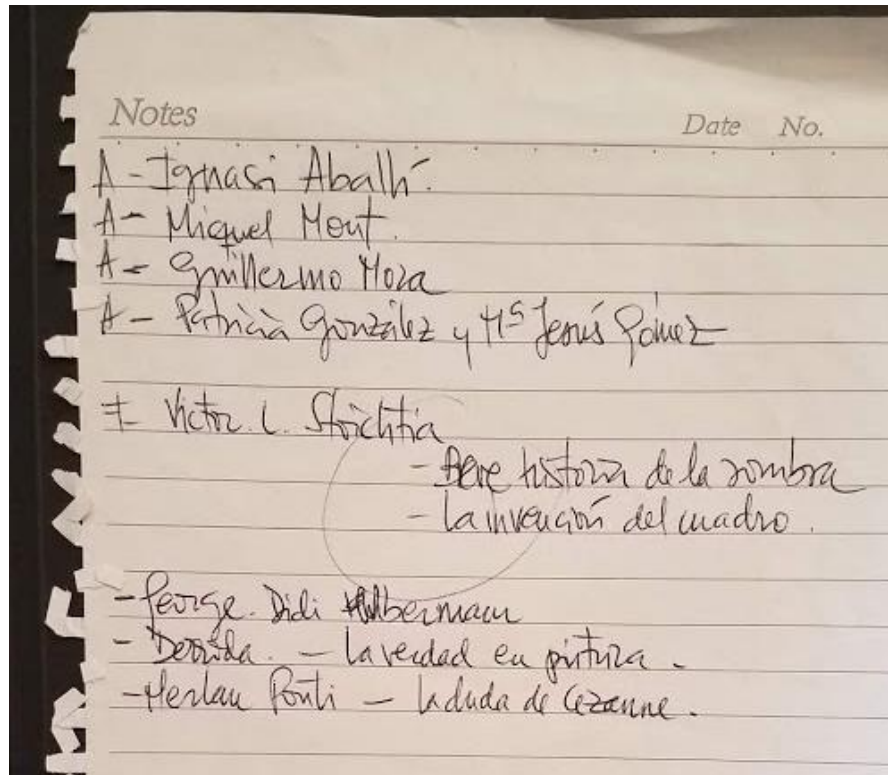 Notes Date No.
A - Ignasi Aballí.
A - Miquel Mont.
A - Guillermo Mora
A - Patricia González y Mª Jesús Gómez
T- Victor. L. Stoichtia
- Breve historia de la sombra
- La invención del cuadro.
- George. Didi Hubermann
- Derrida. - La verdad en pintura -
- Merlau Ponti - la duda de Cezanne.